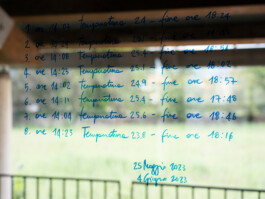 ore 14 Temperatura 24 - fine ore 18:24
2. ore Temperatura - fine ore
3. ore 14 Temperatura - fine ore
4. ore 14:25 Temperatura - fine ore 18:02
5. ore 14:02 Temperatura 24.9 - fine ore 18:57
6. ore 14:11 Temperatura 25.4 - fine ore 17:48
7. ore 14:04 Temperatura 25.6 - fine ore 18:46
8. ore 14:23 Temperatura 23.8 - fine ore 18:16
25 Maggio 2023
4 Giugno 2023